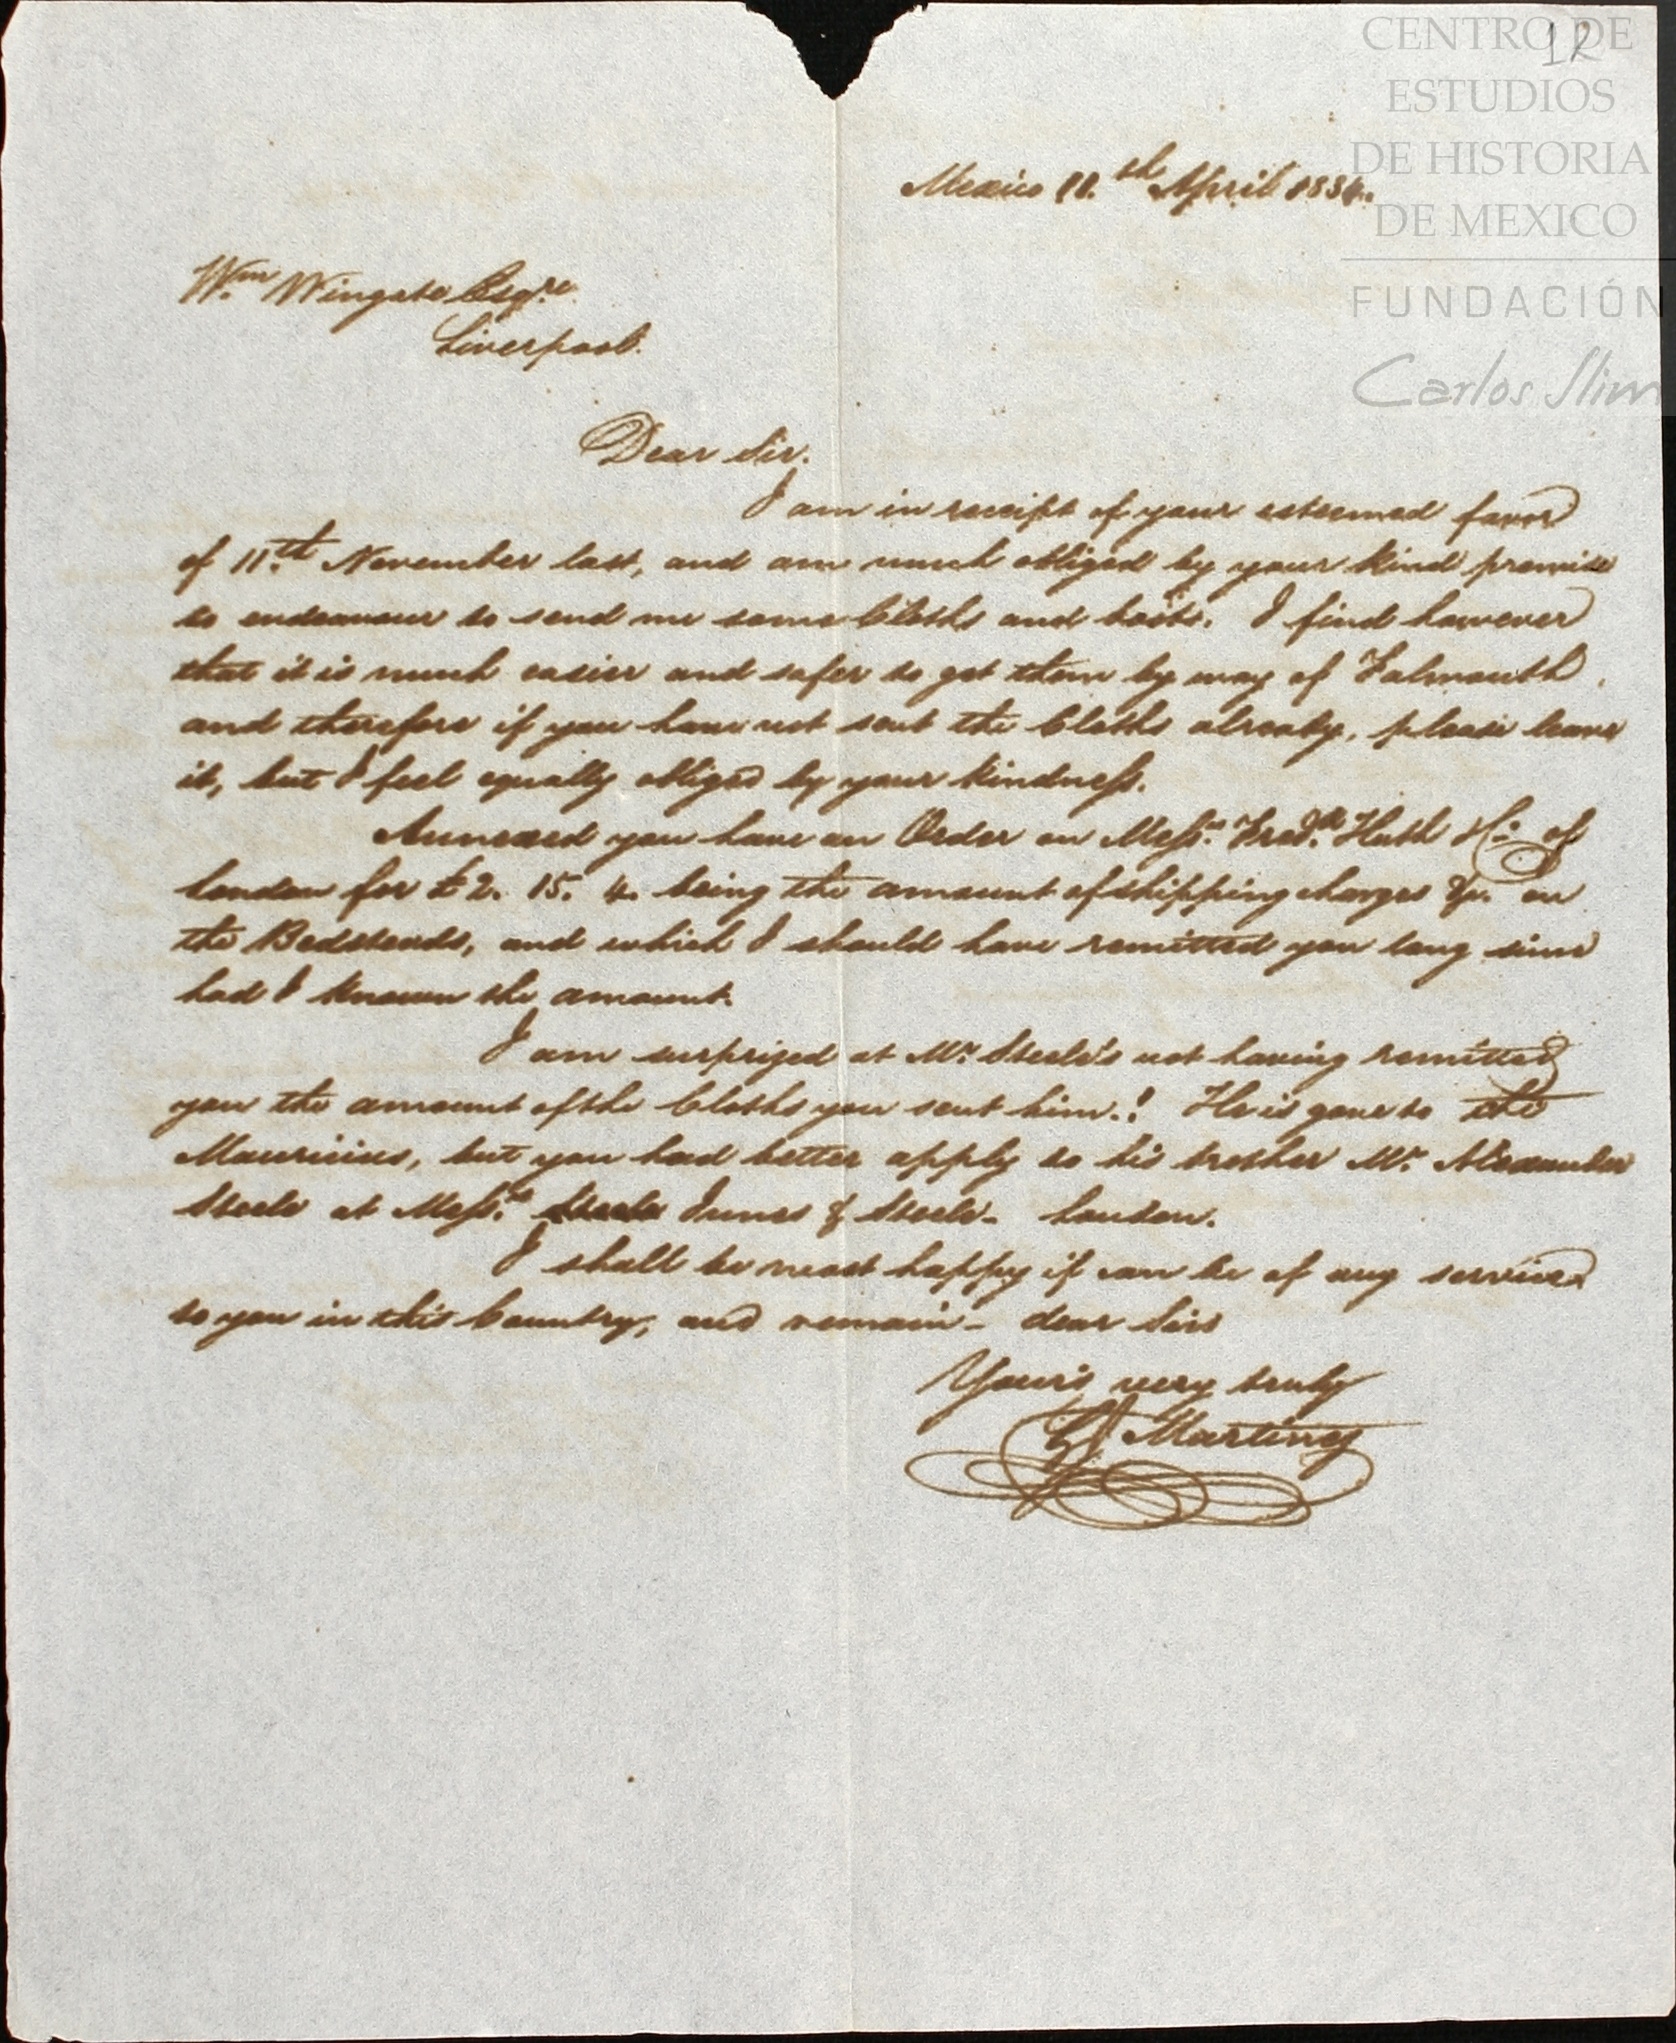 12
CENTRO DE
ESTUDIOS
DE HISTORIA
DE MEXICO
FUNDACIÓN
Carlos Slim
Mexico 11.th April 1834.
Wm. Wingate Esqre.
Liverpool.
Dear Sir.
I am in receipt of your esteemed favor
of 11.th November last, and am much obliged by your kind promise
to endeavour to send me some Cloths and boots. I find however
that it is much easier and safer to get them by way of Falmouth,
and therefore if you have not sent the Cloths already, please leave
it, but I feel equally obliged by your kindness.
Annexed you have an Order on Messrs. Fredk. Huth & Co. of
London for £2. 15. 4. being the amount of shipping charges &c. on
the Bedsteads, and which I should have remitted you long since
had I known the amount.
I am surprized at Mr. Steele's not having remitted
you the amount of the Cloths you sent him.! He is gone to the
Mauricius, but you had better apply to his brother Mr. Alexander
Steele at Messrs. Steele Innes & Steele - London.
I shall be most happy if can be of any service
to you in this Country, and remain - dear Sir
Yours very truly
Martinez